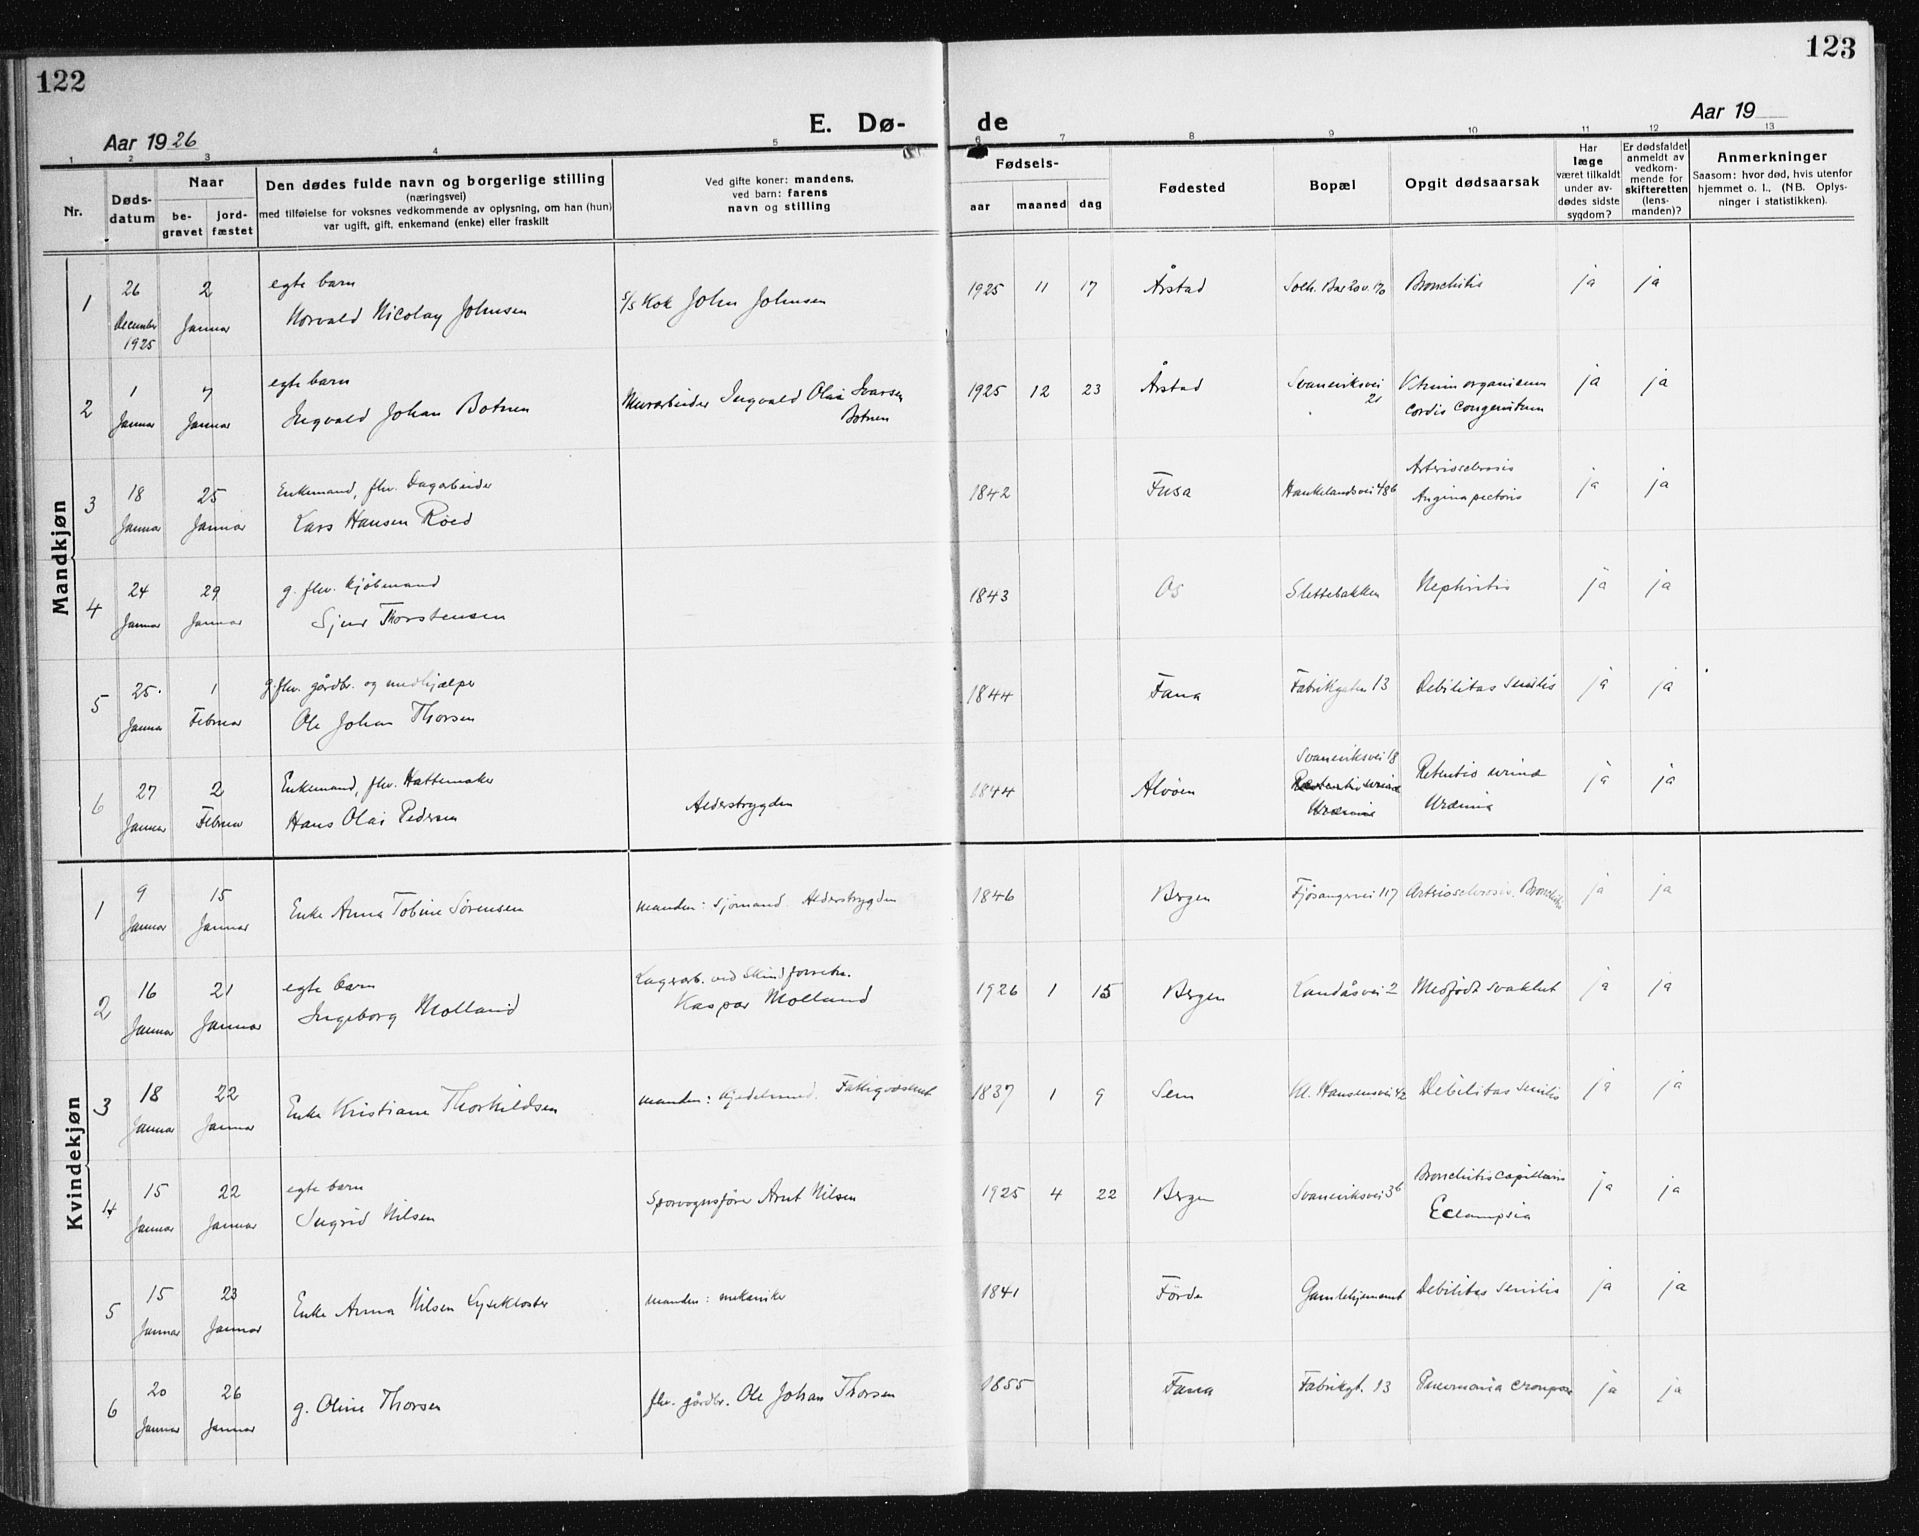 122
123
E. Dø-
de
Aar 1926
Aar 19
1 2 3 4 5 6 7 8 9 10 11 12 13
Nr.
Døds-
datum
Naar
be-
gravet
jord-
fæstet
Den dødes fulde navn og borgerlige stilling
(næringsvei)
med tilføielse for voksnes vedkommende av oplysning, om han (hun)
var ugift, gift, enkemand (enke) eller fraskilt
Ved gifte koner: mandens,
ved barn: farens
navn og stilling
Fødsels-
aar maaned dag
Fødested
Bopæl
Opgit dødsaarsak
Har
læge
været tilkaldt
under av-
dødes sidste
sygdom?
Er dødsfaldet
anmeldt av
vedkom-
mende for
skifteretten
(lens-
manden)?
Anmerkninger
Saasom: hvor død, hvis utenfor
hjemmet o. l., (NB. Oplys-
ninger i statistikken).
Mandkjøn
1 26 December 1925 2 Januar
egte barn
Norvald Nicolay Johnsen
s/s Kok John Johnsen
1925 11 17 Årstad
Bronchitis ja ja
2 1 Januar 7 Januar
egte barn
Ingvald Johan Botnen
Murarbeider Ingvald Olai Ivarsen
Botnen
1925 12 23 Årstad Svaneviksvei
21
Vitium organicum
cordis congenitum
ja ja
3 18 Januar 25 Januar
Enkemand, fhv. Dagarbeider
Lars Hansen Röed
1842 Fusa Haukelandsvei 48b
Arteriosclerosis
Angina pectoris
ja ja
4 24 Januar 29 Januar
g. fhv. Kjöbmand
Sjur Thorstensen
1843 Os Slettebakken Nephritis ja ja
5 25 Januar 1 Februar
g. fhv. gårdbr. og medhjælper
Ole Johan Thorsen
1844 Fana Fabrikgaten 13 Debilitas senilis ja ja
6 27 Januar 2 Februar
Enkemand, fhv. Hattemaker
Hans Olai Pedersen
Alderstrygden
1844 Alvöen Svaneviksvei 18
Retentio urinæ
Uræmia
Retentio urinæ
Uræmia
ja ja
Kvindekjøn
1 9 Januar 15 Januar
Enke Anna Tobine Sörensen
manden: Sjömand. Alderstrygden
1846 Bergen Fjösangervei 117 Artriosclerosis. Bronchitis ja ja
2 16 Januar 21 Januar
egte barn
Ingeborg Molland
Lagerarb. ved Skindforretn.
Kaspar Molland
1926 1 15 Bergen Landåsvei 2 Medfödt svakhet ja ja
3 18 Januar 22 Januar
Enke Kristiane Thorkildsen
manden: Kjedelsmed. Fattigvæsenet
1837 1 9 Sem Kl. Hansensvei 42 Debilitas senilis ja ja
4 15 Januar 22 Januar
egte barn
Ingrid Nilsen
Sporvognsförer Arnt Nilsen
1925 4 22 Bergen Svaneviksvei 36
Bronchitis capillaris
Eclampsia
ja ja
5 15 Januar 23 Januar
Enke Anna Nilsen Lysekloster
manden: mekaniker
1841 Förde Gamlehjemmet Debilitas senilis ja ja
6 20 Januar 26 Januar
g. Oline Thorsen
fhv. gårdbr. Ole Johan Thorsen
1855 Fana Fabrikgt. 13 Pneumonia crouposa ja ja